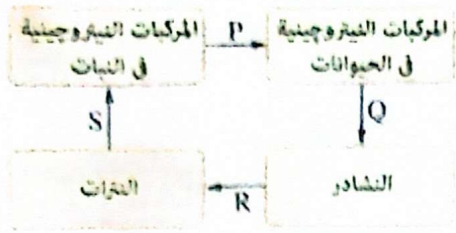 المركبات النيتروچينية
فى النبات
P
المركبات النيتروچينية
فى الحيوانات
S
Q
النترات
R
النشادر